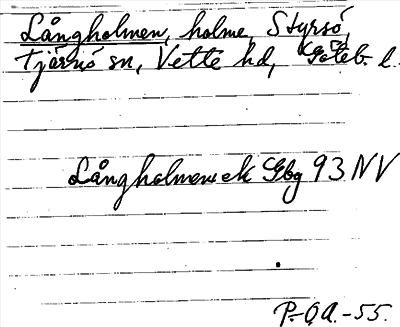 Långholmen, holme, Styrsö,
Tjärnö sn, Vette hd, Göteb. l.
Långholmen ek Gbg 93 NV
P.-O.A. -55.